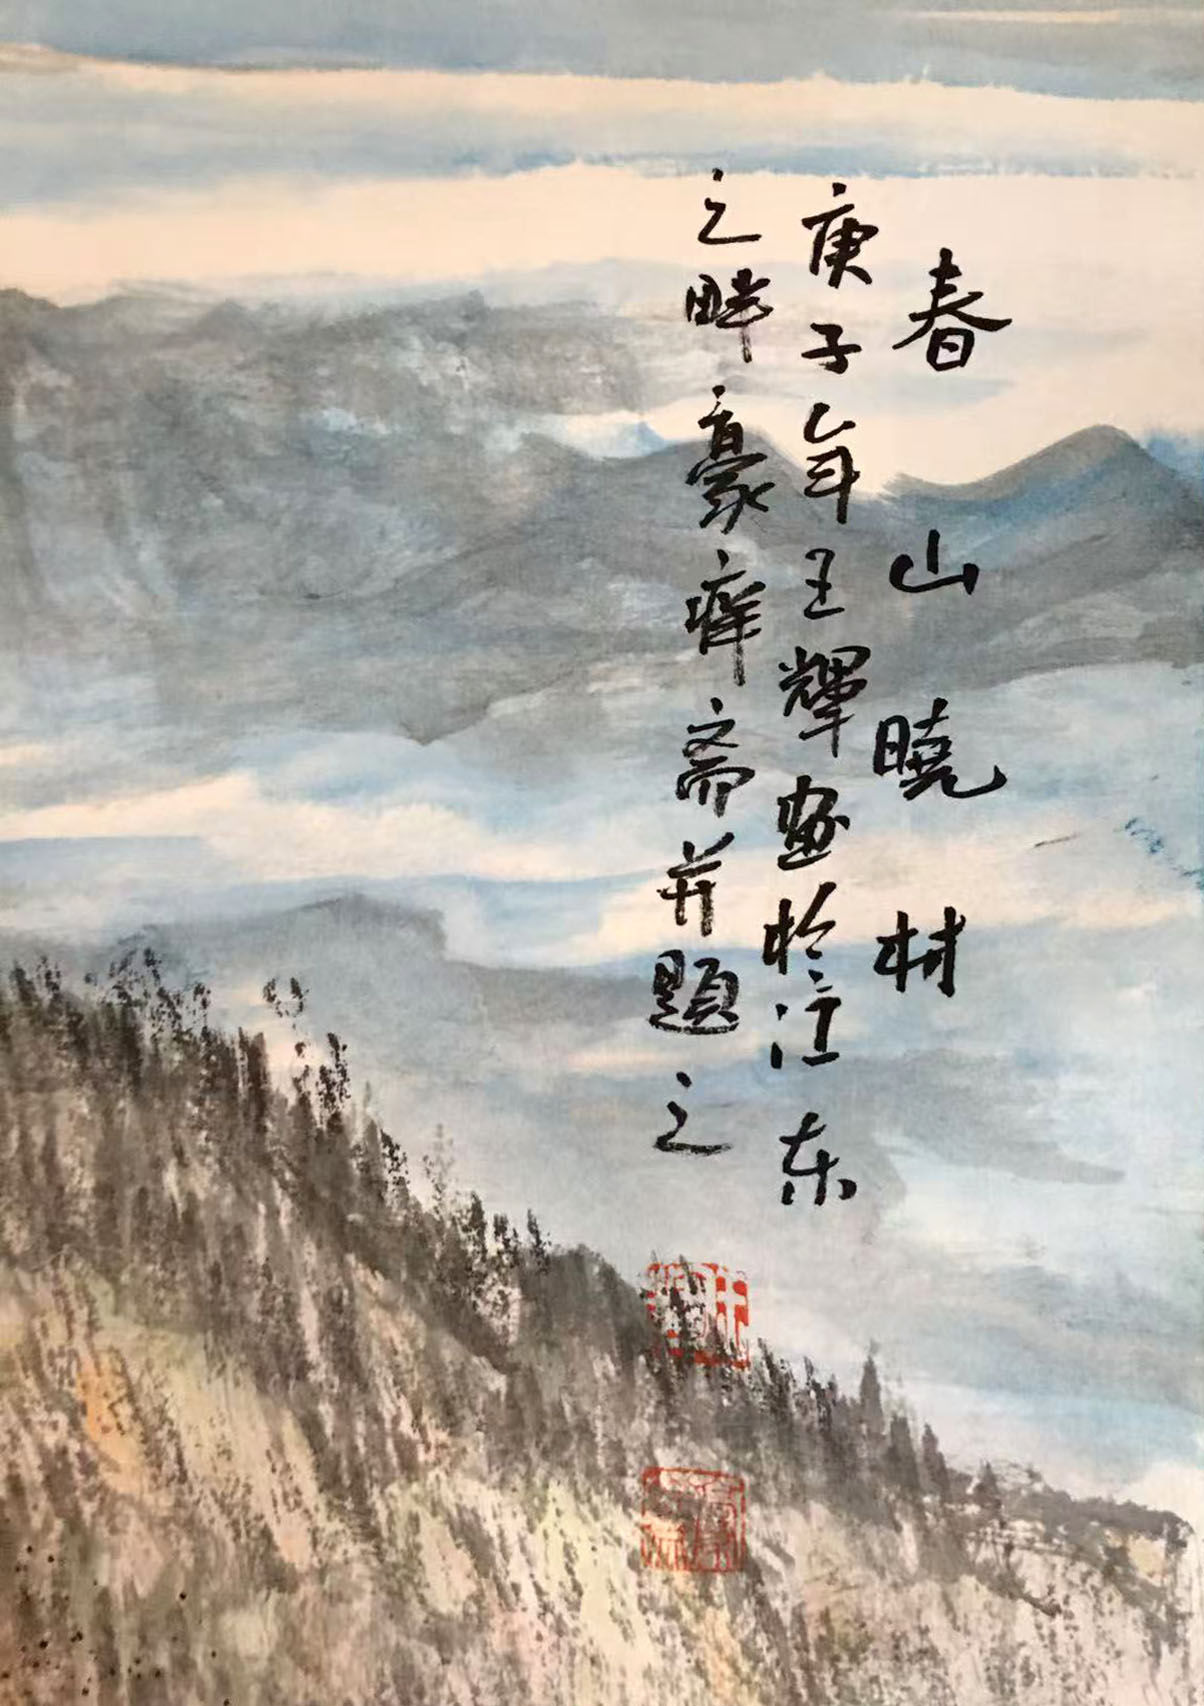 春山曉村
庚子年王輝畫於江东
之畔豪痒斋并題之